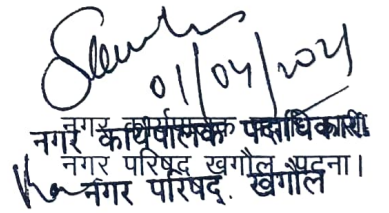 01/04/2021
नगर कार्यपालक पदाधिकारी
नगर कार्यपालक पदाधिकारी
नगर परिषद् खगौल पटना।
नगर परिषद्. खगौल